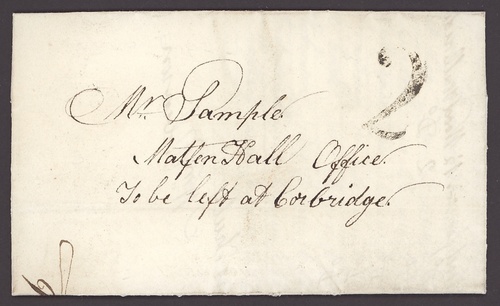 2
Mr. Sample.
Matfen Hall Office.
To be left at Corbridge.